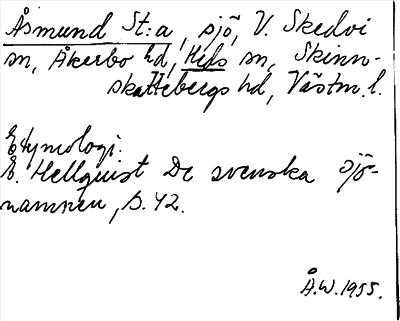 Åsmund St:a, sjö, V. Skedvi
sn, Åkerbo hd, Heds sn, Skinn-
skattebergs hd, Västm. l.
Etymologi.
E. Hellquist De svenska sjö-
namnen, s. 42.
Å.W. 1955.